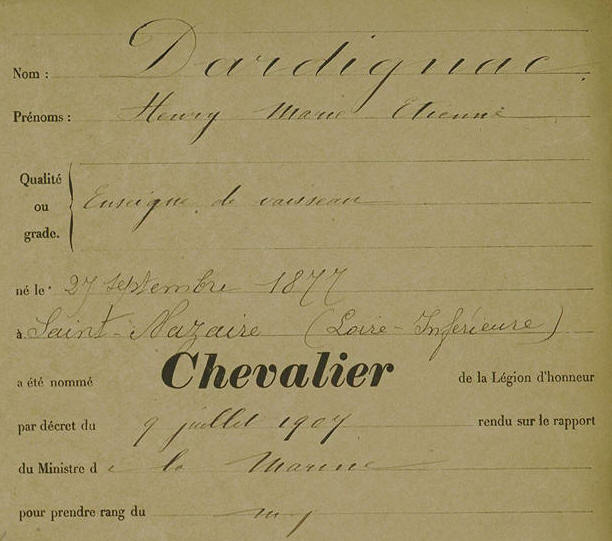 Nom : Dardignac
Prénoms : Henry Marie Etienne
Qualité
ou
grade.
Enseigne de vaisseau
né le 27 septembre 1877
à Saint-Nazaire (Loire-Inférieure)
a été nommé Chevalier de la Légion d'honneur
par décret du 9 juillet 1907 rendu sur le rapport
du Ministre de la Marine
pour prendre rang du